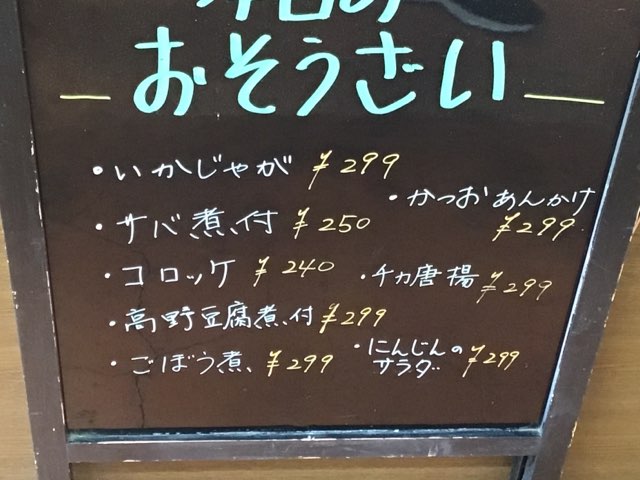 本日の
おそうざい
・いかじゃが ¥299
・サバ煮付 ¥250
・コロッケ ¥240
・高野豆腐煮付 ¥299
・ごぼう煮、 ¥299
・かつおあんかけ
¥299
・チカ唐揚 ¥299
・にんじんの
サラダ ¥299